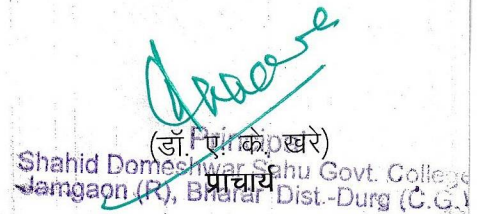 (डॉ. ए. के. खरे)
Principal
Shahid Domeshwar Sahu Govt. College
प्राचार्य
Jamgaon (R), Bharar Dist.-Durg (C.G.)